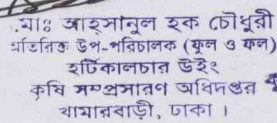 মোঃ আহসানুল হক চৌধুরী
অতিরিক্ত উপ-পরিচালক (ফুল ও ফল)
হর্টিকালচার উইং
কৃষি সম্প্রসারণ অধিদপ্তর
খামারবাড়ী, ঢাকা ।